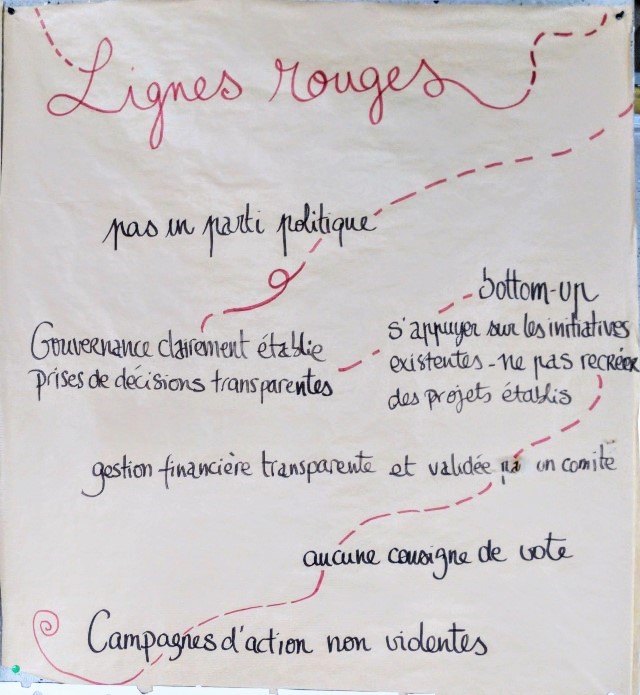 Lignes rouges
pas un parti politique
Gouvernance clairement établie
prises de décisions transparentes
bottom-up
s'appuyer sur les initiatives
existentes - ne pas recréer
des projets établis
gestion financière transparente et validée un comité
aucune consigne de vote
Campagnes d'action non violentes